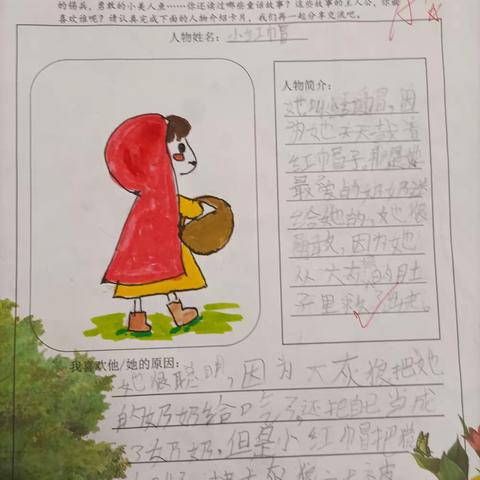 的锡兵，勇敢的小美人鱼……你还读过哪些童话故事？这些故事的主人公，你最
喜欢谁呢？请认真完成下面的人物介绍卡片，我们再一起分享交流吧。
人物姓名：小红帽
人物简介：
她叫小红帽，因
为她天天戴着
红帽子，那是她
最爱的奶奶送
给她的，她很
勇敢，因为她
从大灰狼的肚
子里来了出来。
我喜欢他/她的原因：
她很聪明，因为大灰狼把她
的奶奶给吃了还把自己当成
了大奶奶，但是小红帽把
大灰狼